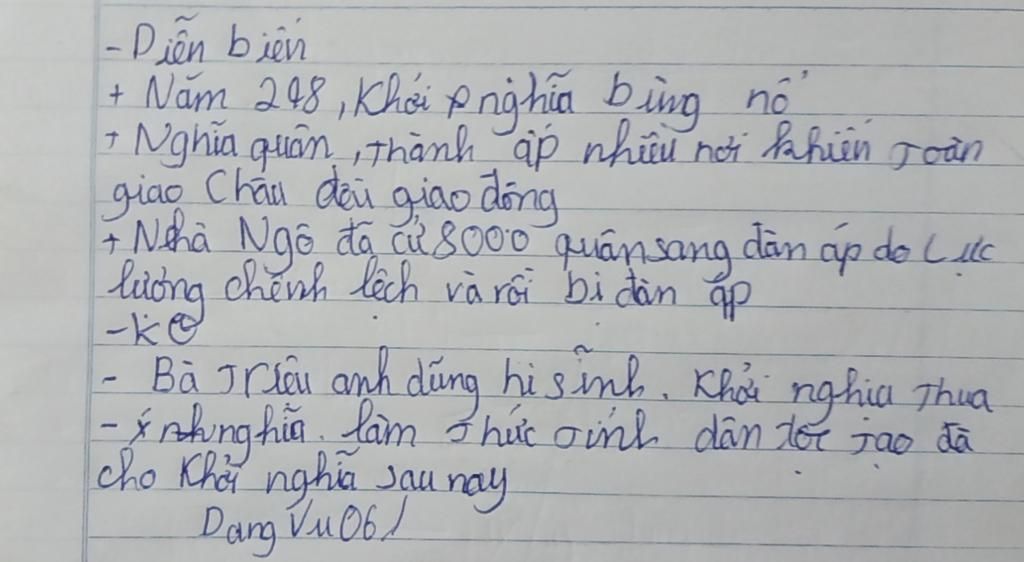 - Diễn biến
+ Năm 248, Khởi nghĩa bùng nổ
+ Nghĩa quân, thành ấp nhiều nơi khiến toàn
giao Châu đều giao đông
+ Nhà Ngô đã cử 8000 quân sang đàn áp do Lực
lương chênh lệch và rồi bi đàn ắp
- k
- Bà Triệu anh dũng hi sinh. Khởi nghia thua
- ý nghĩa. làm thức tỉnh dân tộc tạo đà
cho Khởi nghĩa sau nay
Dang Vu 06